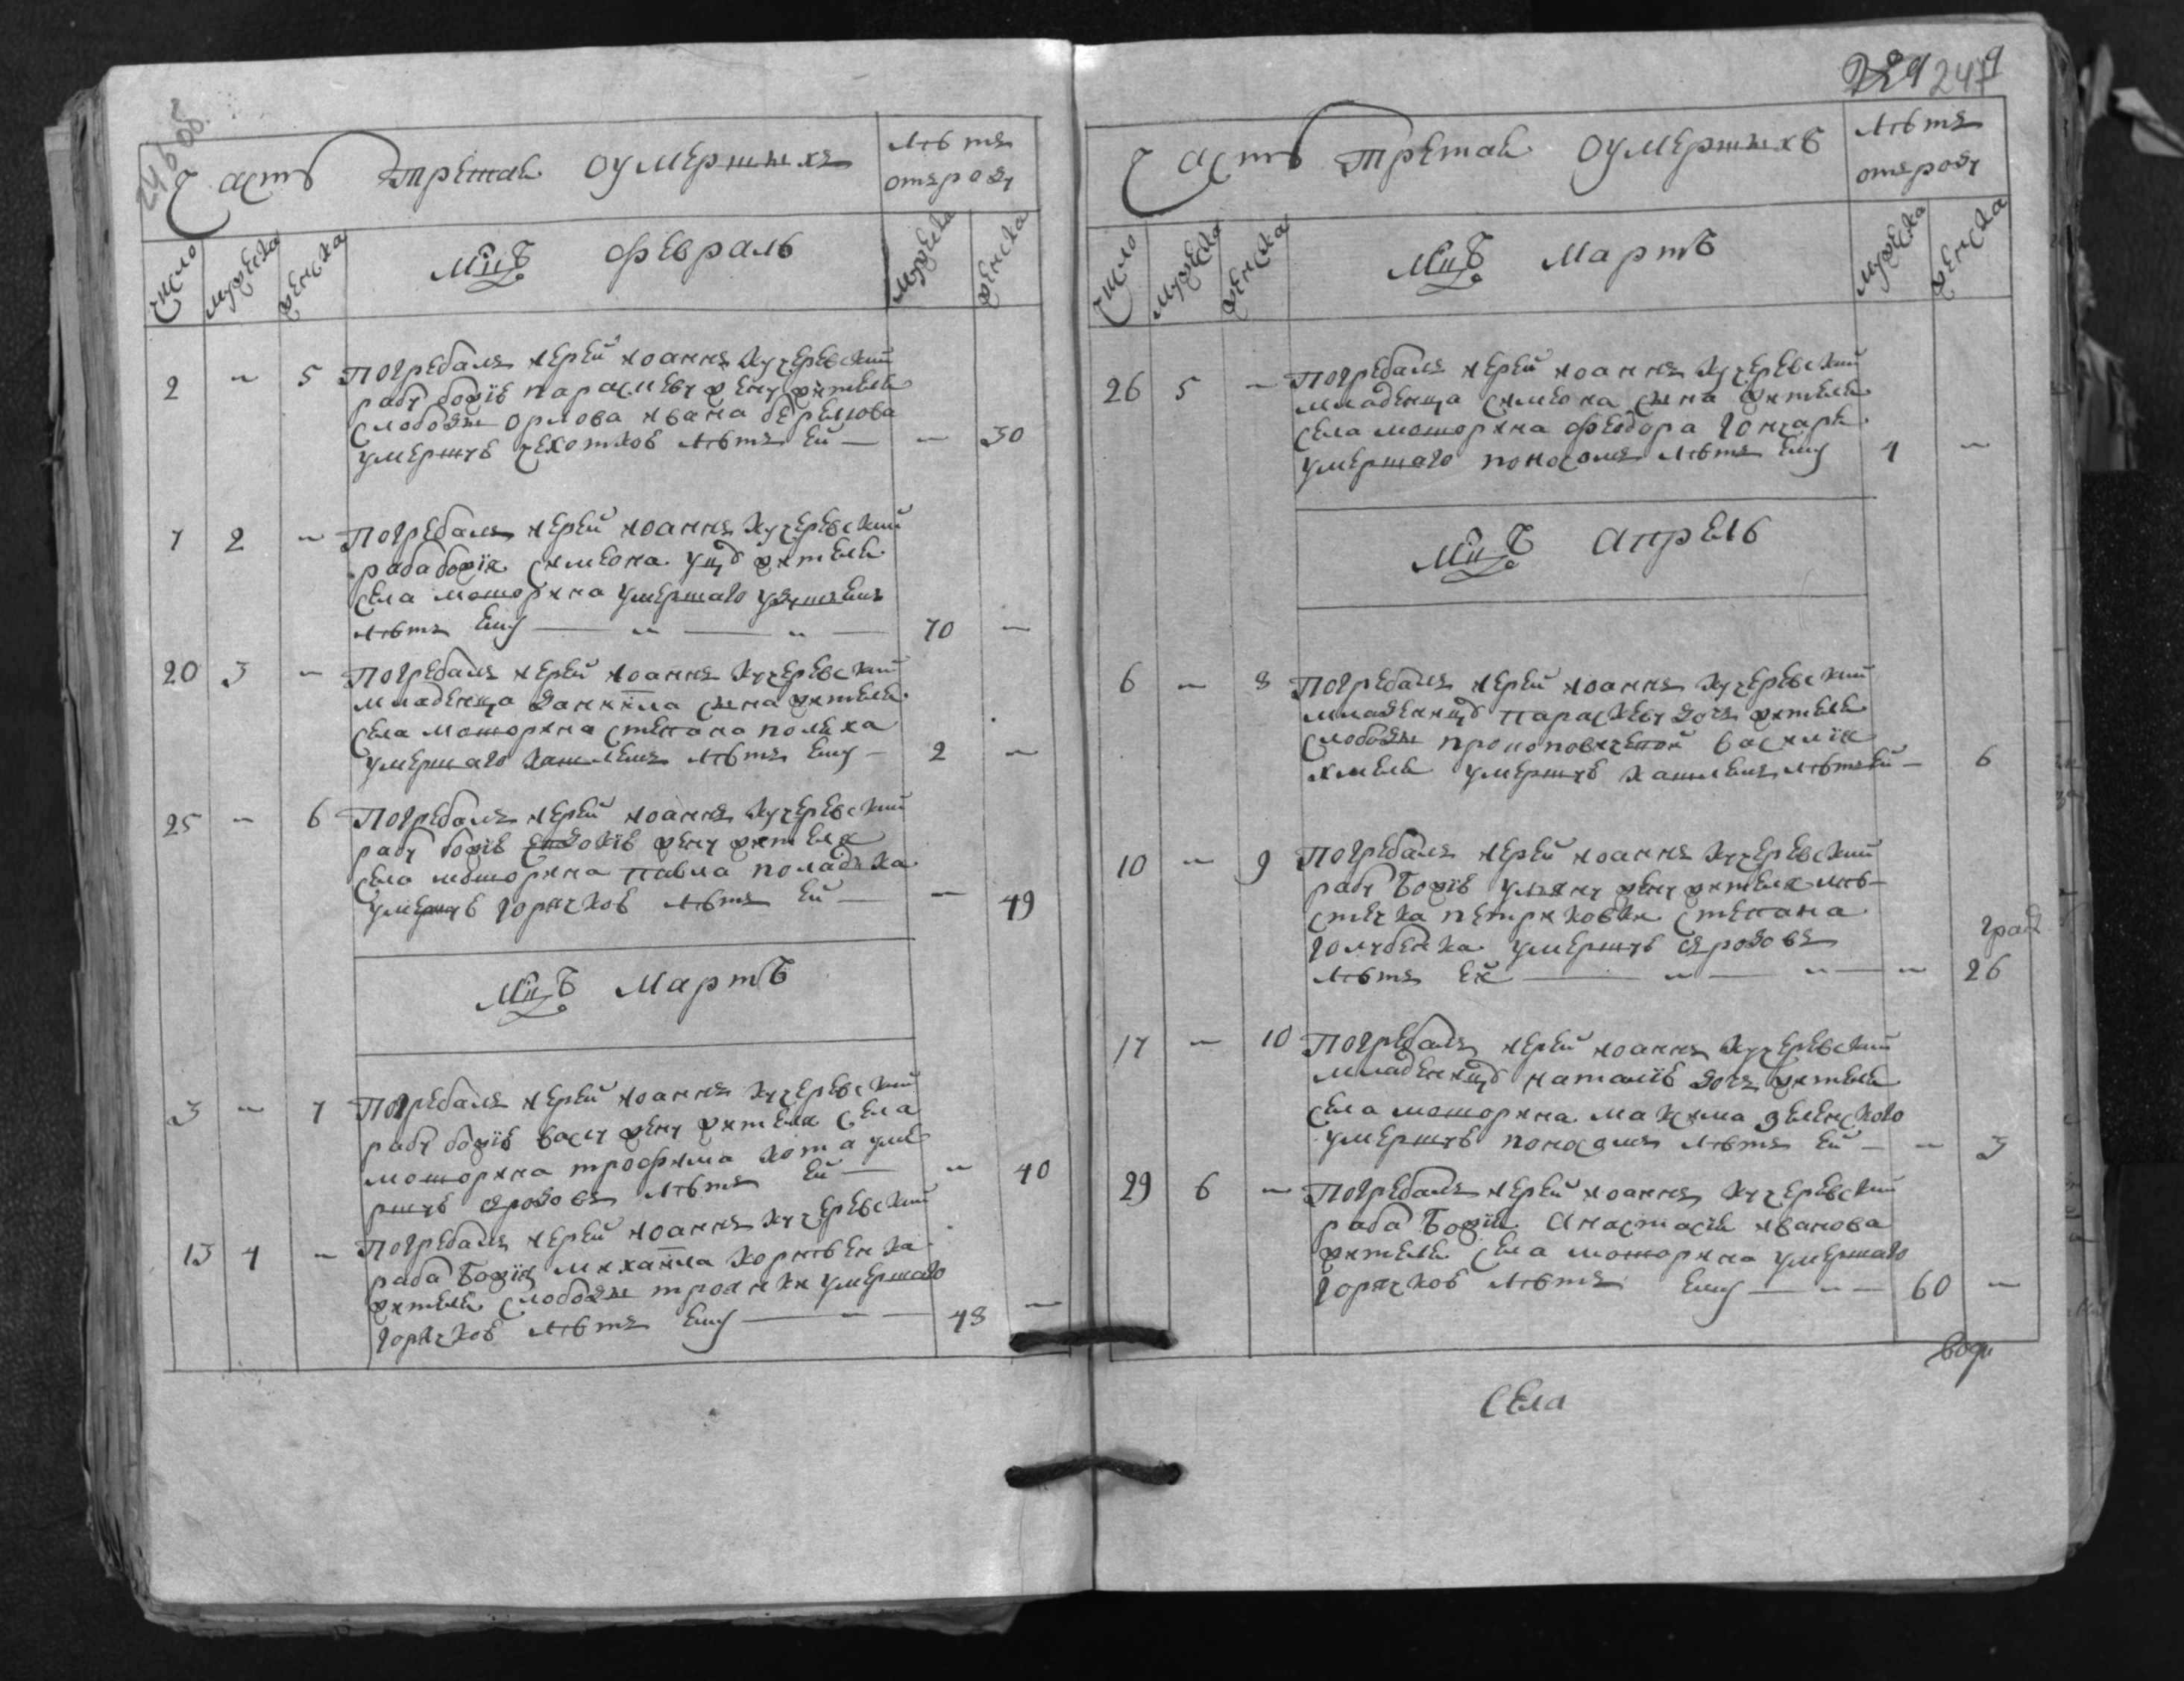 246об
Часть третая оумершихъ
Лѣтъ
отъ роду
число
мужеска
женска
Мцъ Февраль
мужеска
женска
2 – 5 Погребалъ иерей иоаннъ кучеревский
рабу божїю параскеву жену жителя
слободы орлова ивана
умершую чехоткою лѣтъ ей – – 30
7 2 – Погребалъ иерей иоаннъ кучеревский
раба божїя симеона жителя
села моторина умершаго удушьемъ
лѣтъ ему – „ – „ – 70 –
20 3 – Погребалъ иерей иоаннъ кучеревский
младенца даниїла сына жителя
села моторина степана поляка
умершаго кашлемъ лѣтъ ему – 2 –
25 – 6 Погребалъ иерей иоаннъ кучеревский
рабу божїю евдокїю жену жителя
села моторина павла поладька
умершую горячкою лѣтъ ей – – 49
Мцъ Мартъ
3 – 7 Погребалъ иерей иоаннъ кучеревский
рабу божїю васу жену жителя села
моторина трофима кота уме
ршую еродовъ лѣтъ ей – „ 40
13 4 – Погребалъ иерей иоаннъ кучеревский
раба Божїя михаїла корнѣенка
жителя слободы троянки умершаго
горячкою лѣтъ ему – – – 48 –
247
Часть третая оумершихъ
Лѣтъ
отъ роду
число
мужеска
женска
Мцъ Мартъ
мужеска
женска
26 5 – Погребалъ иерей иоаннъ кучеревский
младенца симеона сына жителя
села моторина феодора гончаря
умершаго поносомъ лѣтъ ему 1 –
Мцъ Апрель
6 – 8 Погребалъ иерей иоаннъ кучеревский
младеницу параскеву дочь жителя
слободы василїя
хмеля умершую кашлемъ лѣтъ ей – 6
10 – 9 Погребалъ иерей иоаннъ кучеревский
рабу Божїю уляну жену жителя мѣ–
стечка петриковки степана
голубенка умершую еродовъ
лѣтъ ей – „ – „ – „ 26
17 – 10 Погребалъ иерей иоаннъ кучеревский
младеницу наталїю дочь жителя
села моторина максима зеленского
умершую поносомъ лѣтъ ей – „ 3
29 6 – Погребалъ иерей иоаннъ кучеревский
раба Божїя Анастасїя иванова
жителя села моторина умершаго
горячкою лѣтъ ему – – – 60 –
Села